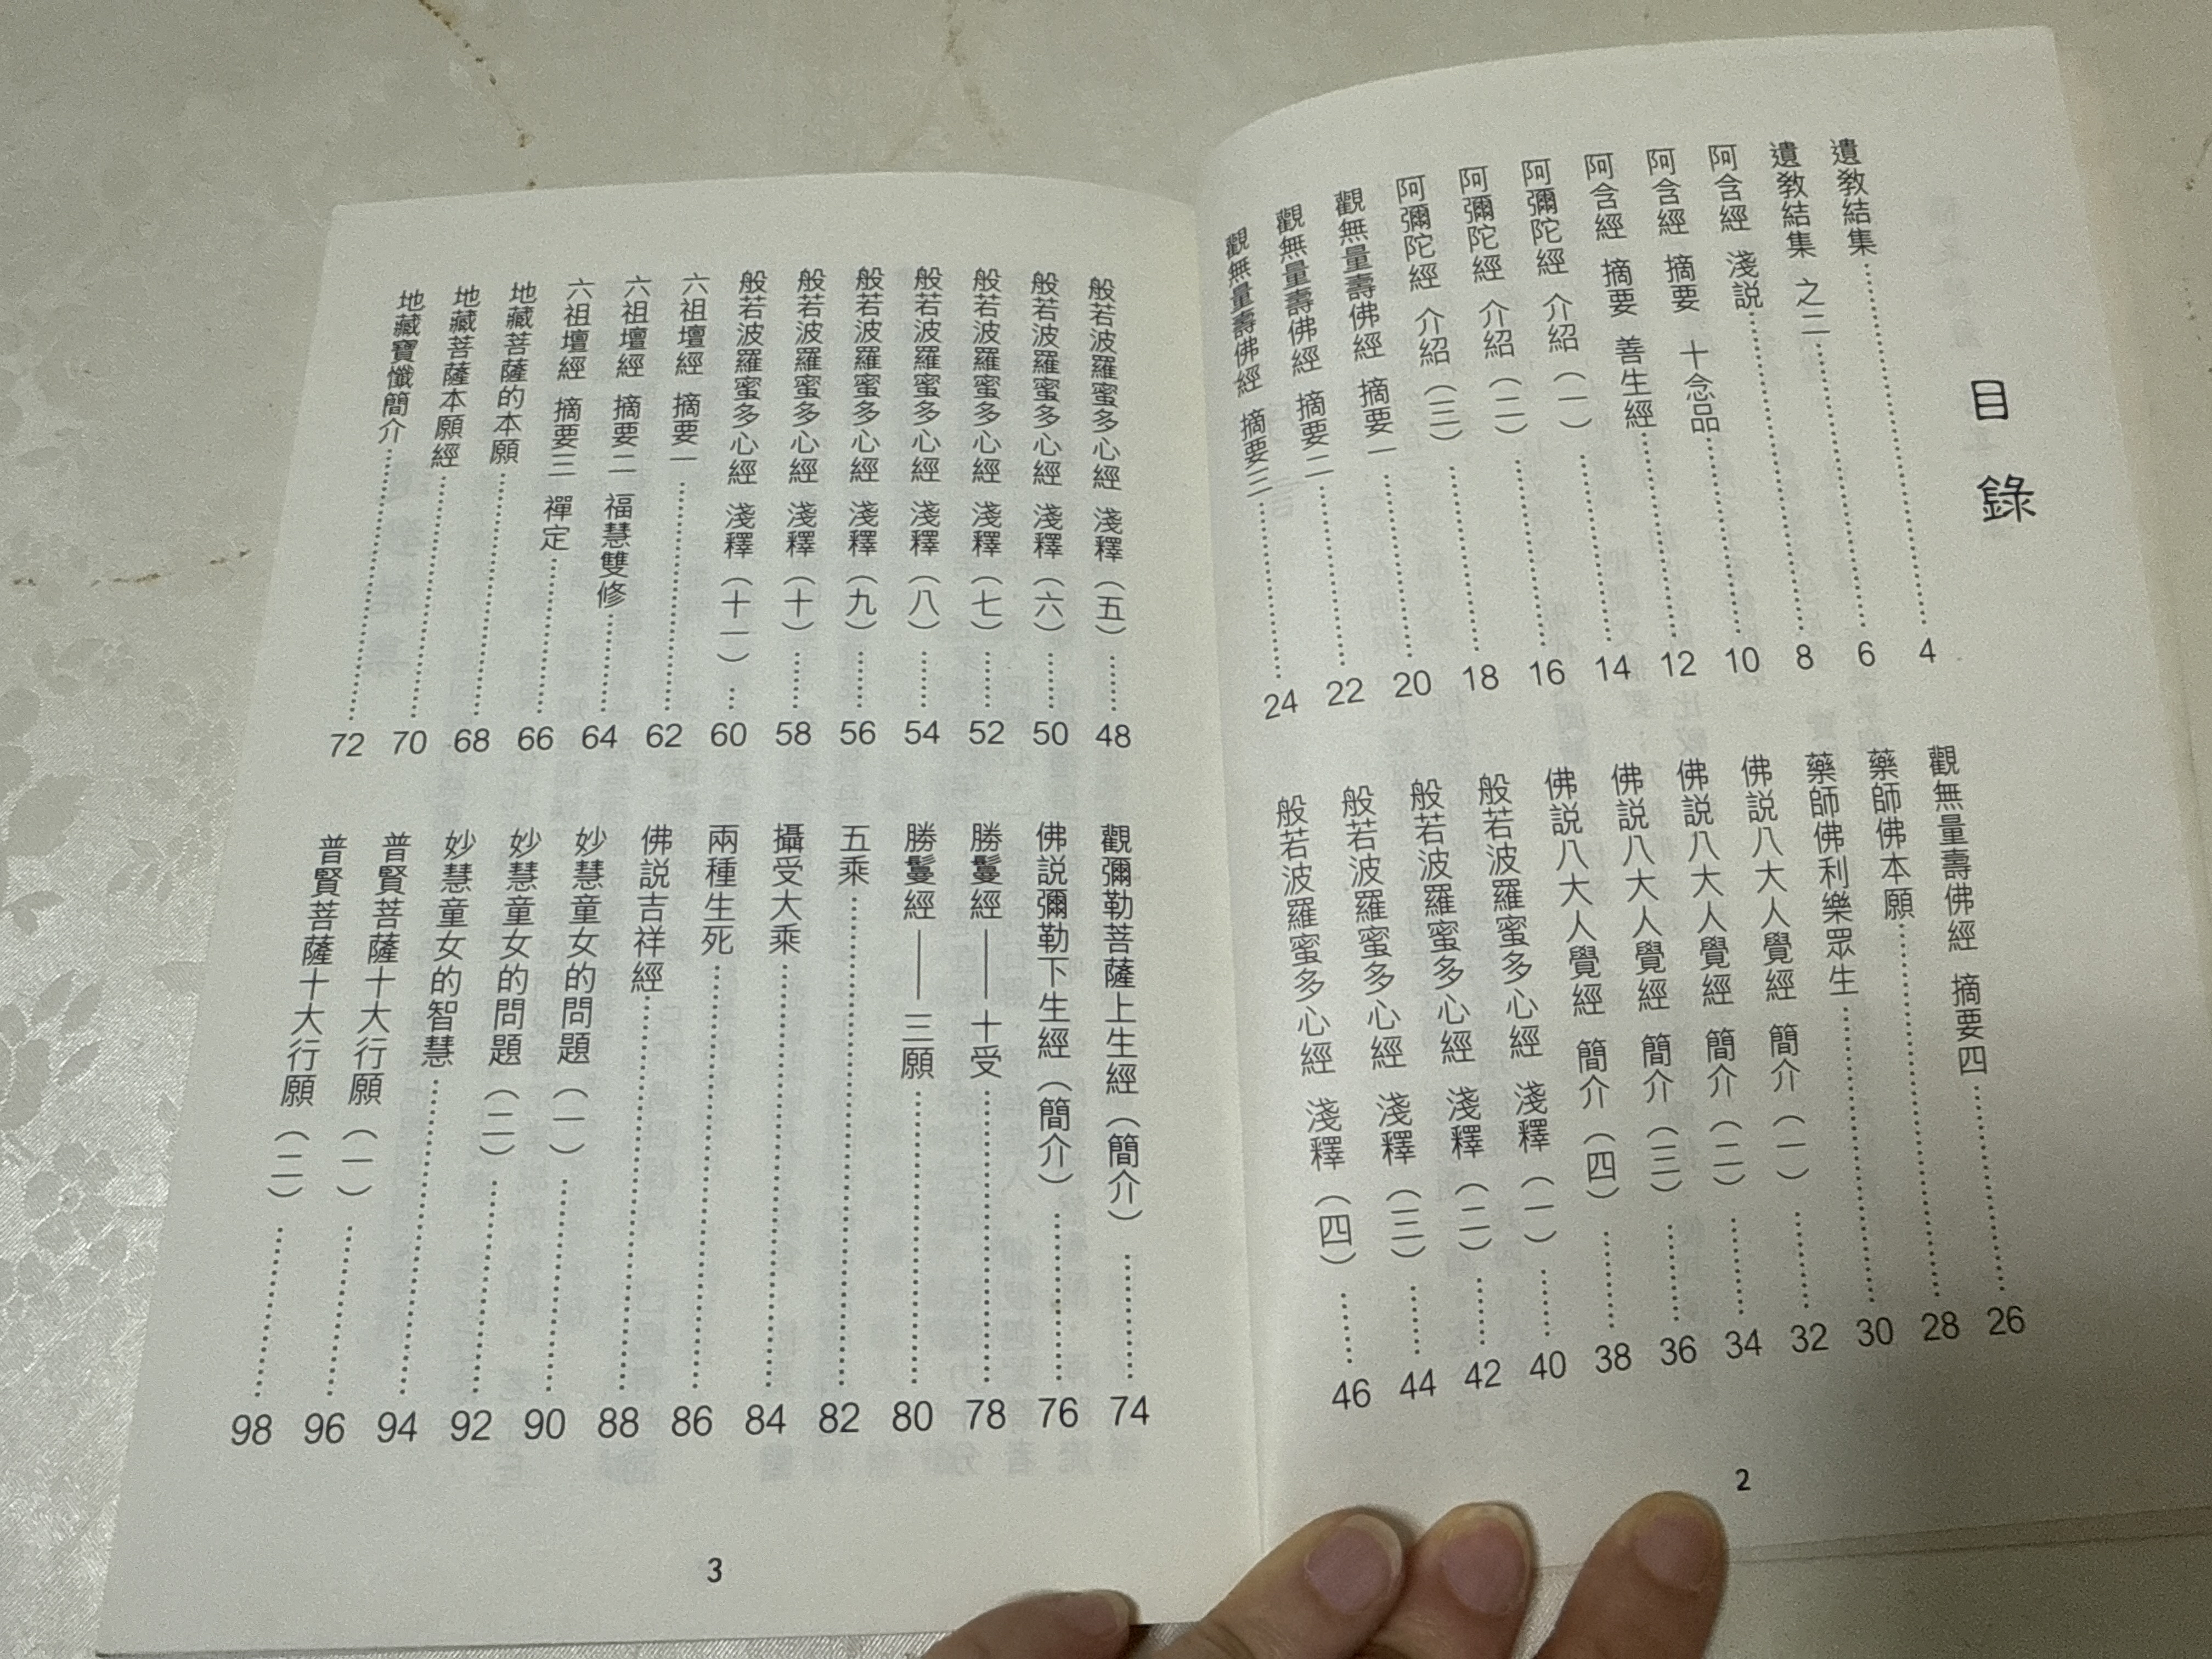 目錄
遺教結集 4
遺教結集 之二 6
阿含經 淺說 8
阿含經 摘要 十念品 10
阿含經 摘要 善生經 12
阿彌陀經 介紹（一） 14
阿彌陀經 介紹（二） 16
阿彌陀經 介紹（三） 18
觀無量壽佛經 摘要一 20
觀無量壽佛經 摘要二 22
觀無量壽佛經 摘要三 24
觀無量壽佛經 摘要四 26
藥師佛本願 28
藥師佛利樂眾生 30
佛說八大人覺經 簡介（一） 32
佛說八大人覺經 簡介（二） 34
佛說八大人覺經 簡介（三） 36
佛說八大人覺經 簡介（四） 38
般若波羅蜜多心經 淺釋（一） 40
般若波羅蜜多心經 淺釋（二） 42
般若波羅蜜多心經 淺釋（三） 44
般若波羅蜜多心經 淺釋（四） 46
2
般若波羅蜜多心經 淺釋（五） 48
般若波羅蜜多心經 淺釋（六） 50
般若波羅蜜多心經 淺釋（七） 52
般若波羅蜜多心經 淺釋（八） 54
般若波羅蜜多心經 淺釋（九） 56
般若波羅蜜多心經 淺釋（十） 58
般若波羅蜜多心經 淺釋（十一） 60
六祖壇經 摘要一 62
六祖壇經 摘要二 福慧雙修 64
六祖壇經 摘要三 禪定 66
地藏菩薩的本願 68
地藏菩薩本願經 70
地藏寶懺簡介 72
觀彌勒菩薩上生經（簡介） 74
佛說彌勒下生經（簡介） 76
勝鬘經——十受 78
勝鬘經——三願 80
五乘 82
攝受大乘 84
兩種生死 86
佛說吉祥經 88
妙慧童女的問題（一） 90
妙慧童女的問題（二） 92
妙慧童女的智慧 94
普賢菩薩十大行願（一） 96
普賢菩薩十大行願（二） 98
3